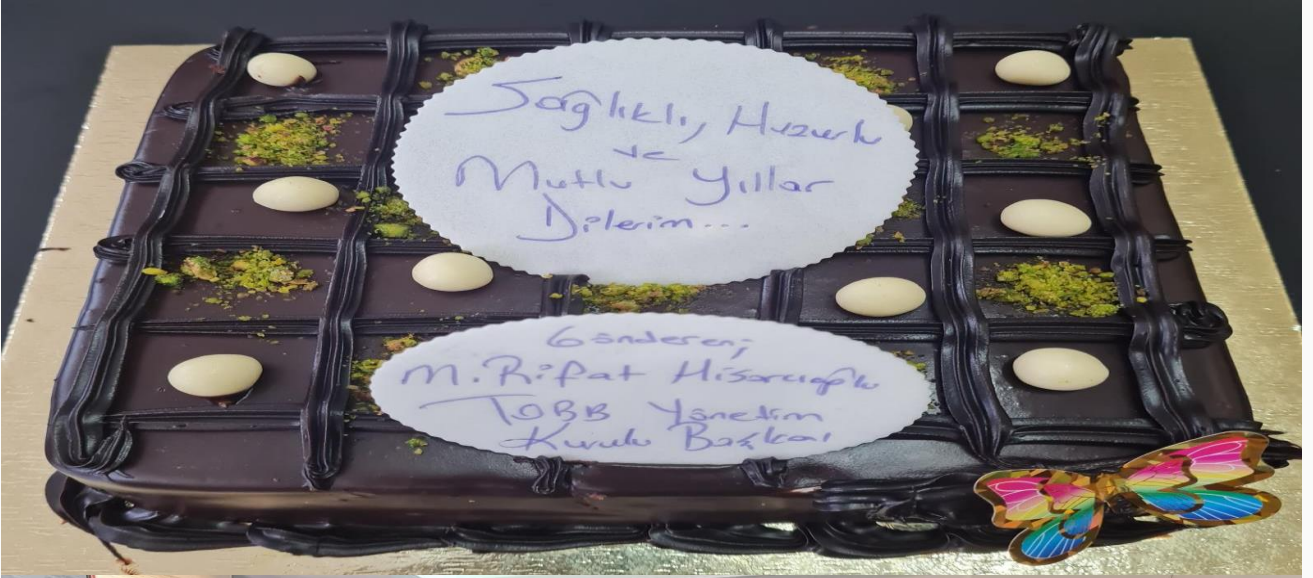 Sağlıklı, Huzurlu
ve
Mutlu Yıllar
Dilerim...
Gönderen;
M. Rifat Hisarcıoğlu
TOBB Yönetim
Kurulu Başkanı